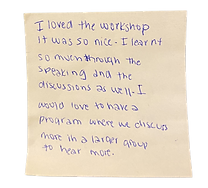 I loved the workshop
it was so nice - I learnt
so much through the
speaking and the
discussions as well - I
would love to have a
program where we discuss
more in a larger group
to hear more.